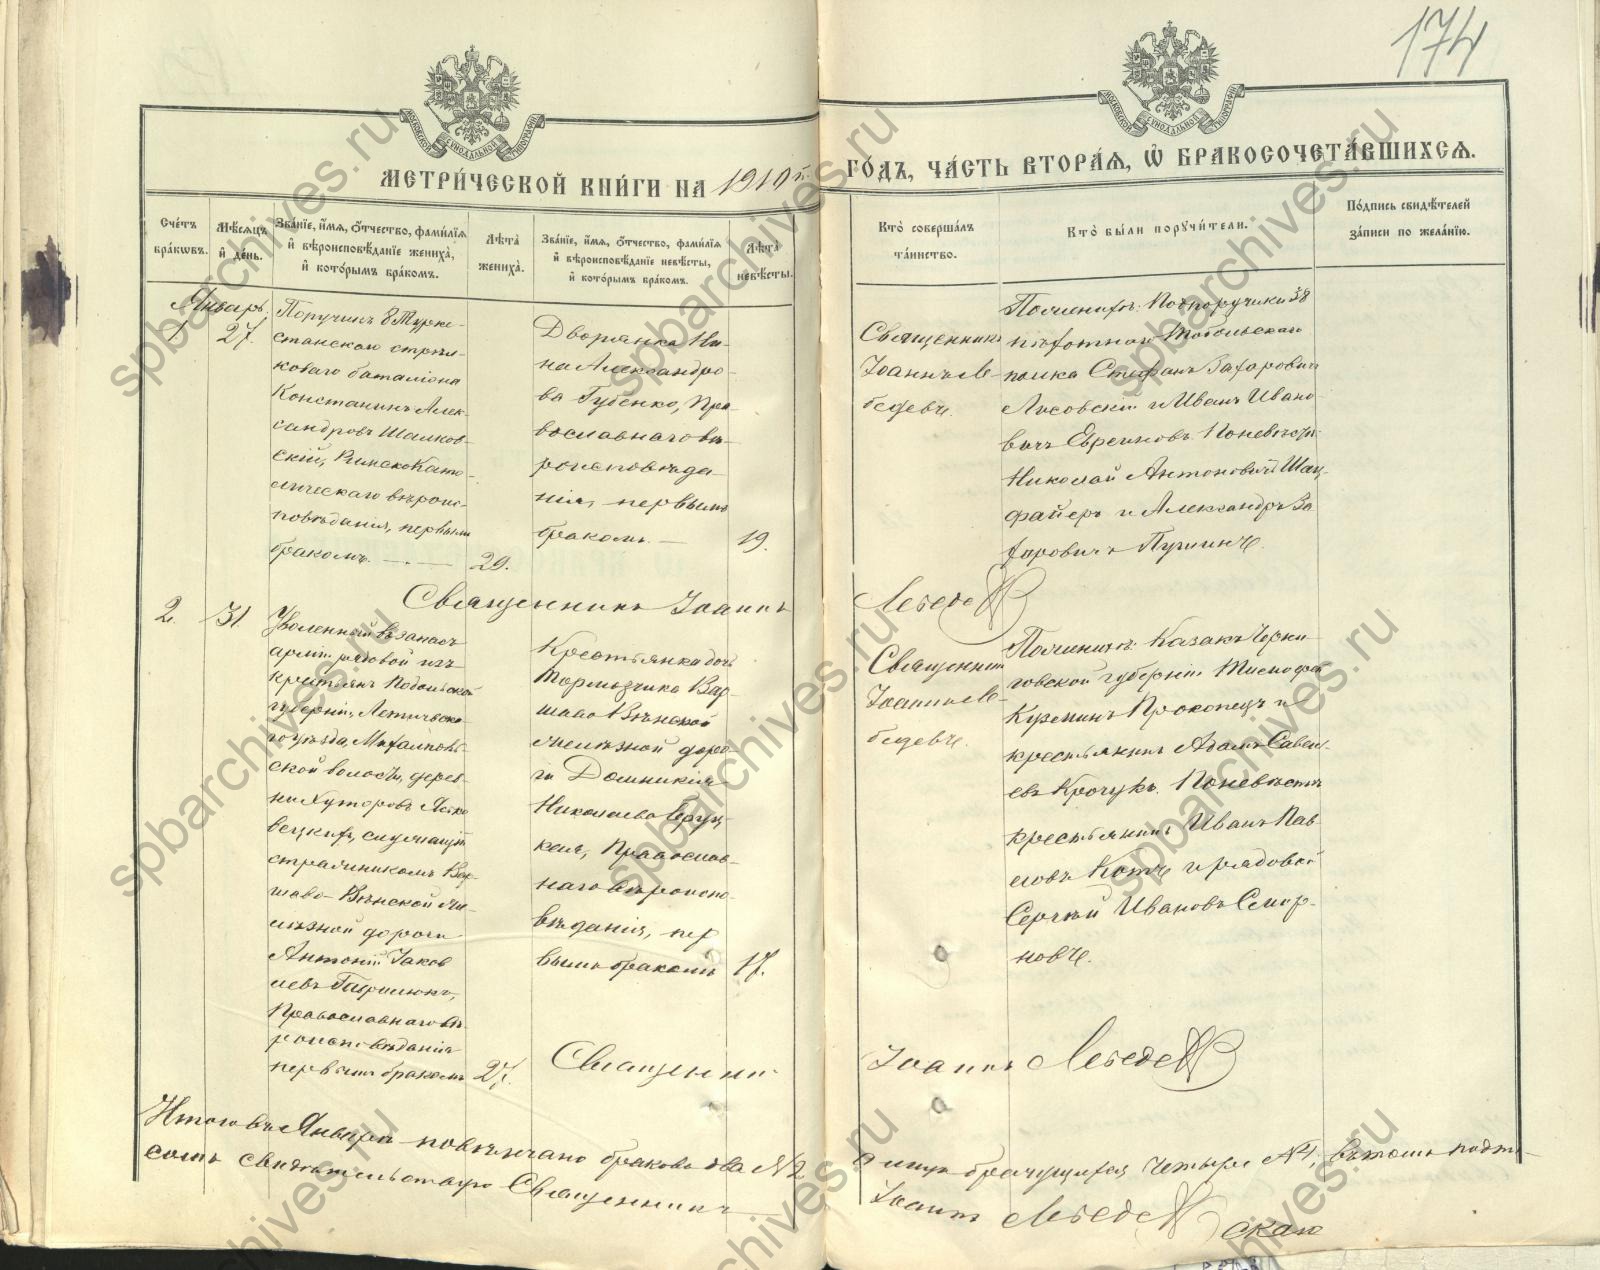 174
МЕТРИ́ЧЕСКОЙ КНИ́ГИ НА 1910 й. ГО́ДЪ, ЧА́СТЬ ВТОРА́Я, Ѽ БРАКОСОЧЕТА́ВШИХСЯ.
Сче́тъ бра́кѡвъ.
Мѣ́сяцъ и҆ де́нь.
Зва́нїе, и҆́мя, ѻ҆́тчество, фами́лїя и҆ вѣроисповѣ́данїе жениха̀, и҆ кото́рымъ бра́комъ.
Лѣ́та жениха̀.
Зва́нїе, и҆́мя, ѻ҆́тчество, фами́лїя и҆ вѣроисповѣ́данїе невѣ́сты, и҆ кото́рымъ бра́комъ.
Лѣ́та невѣ́сты.
Кто̀ соверша́лъ та́инство.
Кто̀ бы́ли поручи́тели.
По́дпись свидѣ́телей за́писи по жела́нїю.
Январь
1
27.
Поручикъ 8 Турке-
станскаго стрѣл-
коваго баталіона
Константинъ Алек-
сандровъ Шалков-
скій, Римско Като-
лическаго вѣроис-
повѣданія, первымъ
бракомъ. —
29.
Дворянка Ни-
на Александро-
ва Губенко, Пра-
вославнаго вѣ-
роисповѣда-
нія, первымъ
бракомъ. —
19.
Священникъ
Іоаннъ Ле-
бедевъ.
По женихѣ: Подпоручики 38
пѣхотнаго Тобольскаго
полка Стефанъ Захаровичъ
Лисовскій и Иванъ Ивано
вичъ Евреиновъ. По невѣстѣ:
Николай Антоновичъ
и Александръ За
харовичъ
Священникъ Іоаннъ Лебедевъ
2.
31.
Уволенный въ запасъ
арміи рядовой изъ
крестьянъ Подольской
губерніи, Летичевска-
го уѣзда, Михайловъ-
ской волости, дерев-
ни Хуторовъ
служащій
Вар-
шаво-Вѣнской же-
лѣзной дороги
Антоній Іаков
левъ Гаврилюкъ,
Православнаго вѣ-
роисповѣданія
первымъ бракомъ
27.
Крестьянка дочь
тормозчика Вар-
шаво Вѣнской
желѣзной доро-
ги Домникія
Николаева
Православ-
наго вѣроиспо-
вѣданія, пер
вымъ бракомъ
17.
Священникъ
Іоаннъ Ле-
бедевъ.
По женихѣ: Казакъ Черни-
говской губерніи Тимофей
Кузминъ Прокопецъ и
крестьянинъ Адамъ Савель-
евъ Крочукъ. По невѣстѣ
крестьянинъ Иванъ Пав-
ловъ Котъ и рядовой
Сергѣй Ивановъ Смир-
новъ.
Священникъ Іоаннъ Лебедевъ
Итого въ Январѣ повѣнчано браковъ два № 2 а лицъ брачущихся четыре № 4, въ томъ подпи-
сомъ свидѣтельствую Священникъ Іоаннъ Лебедевъ
скаю